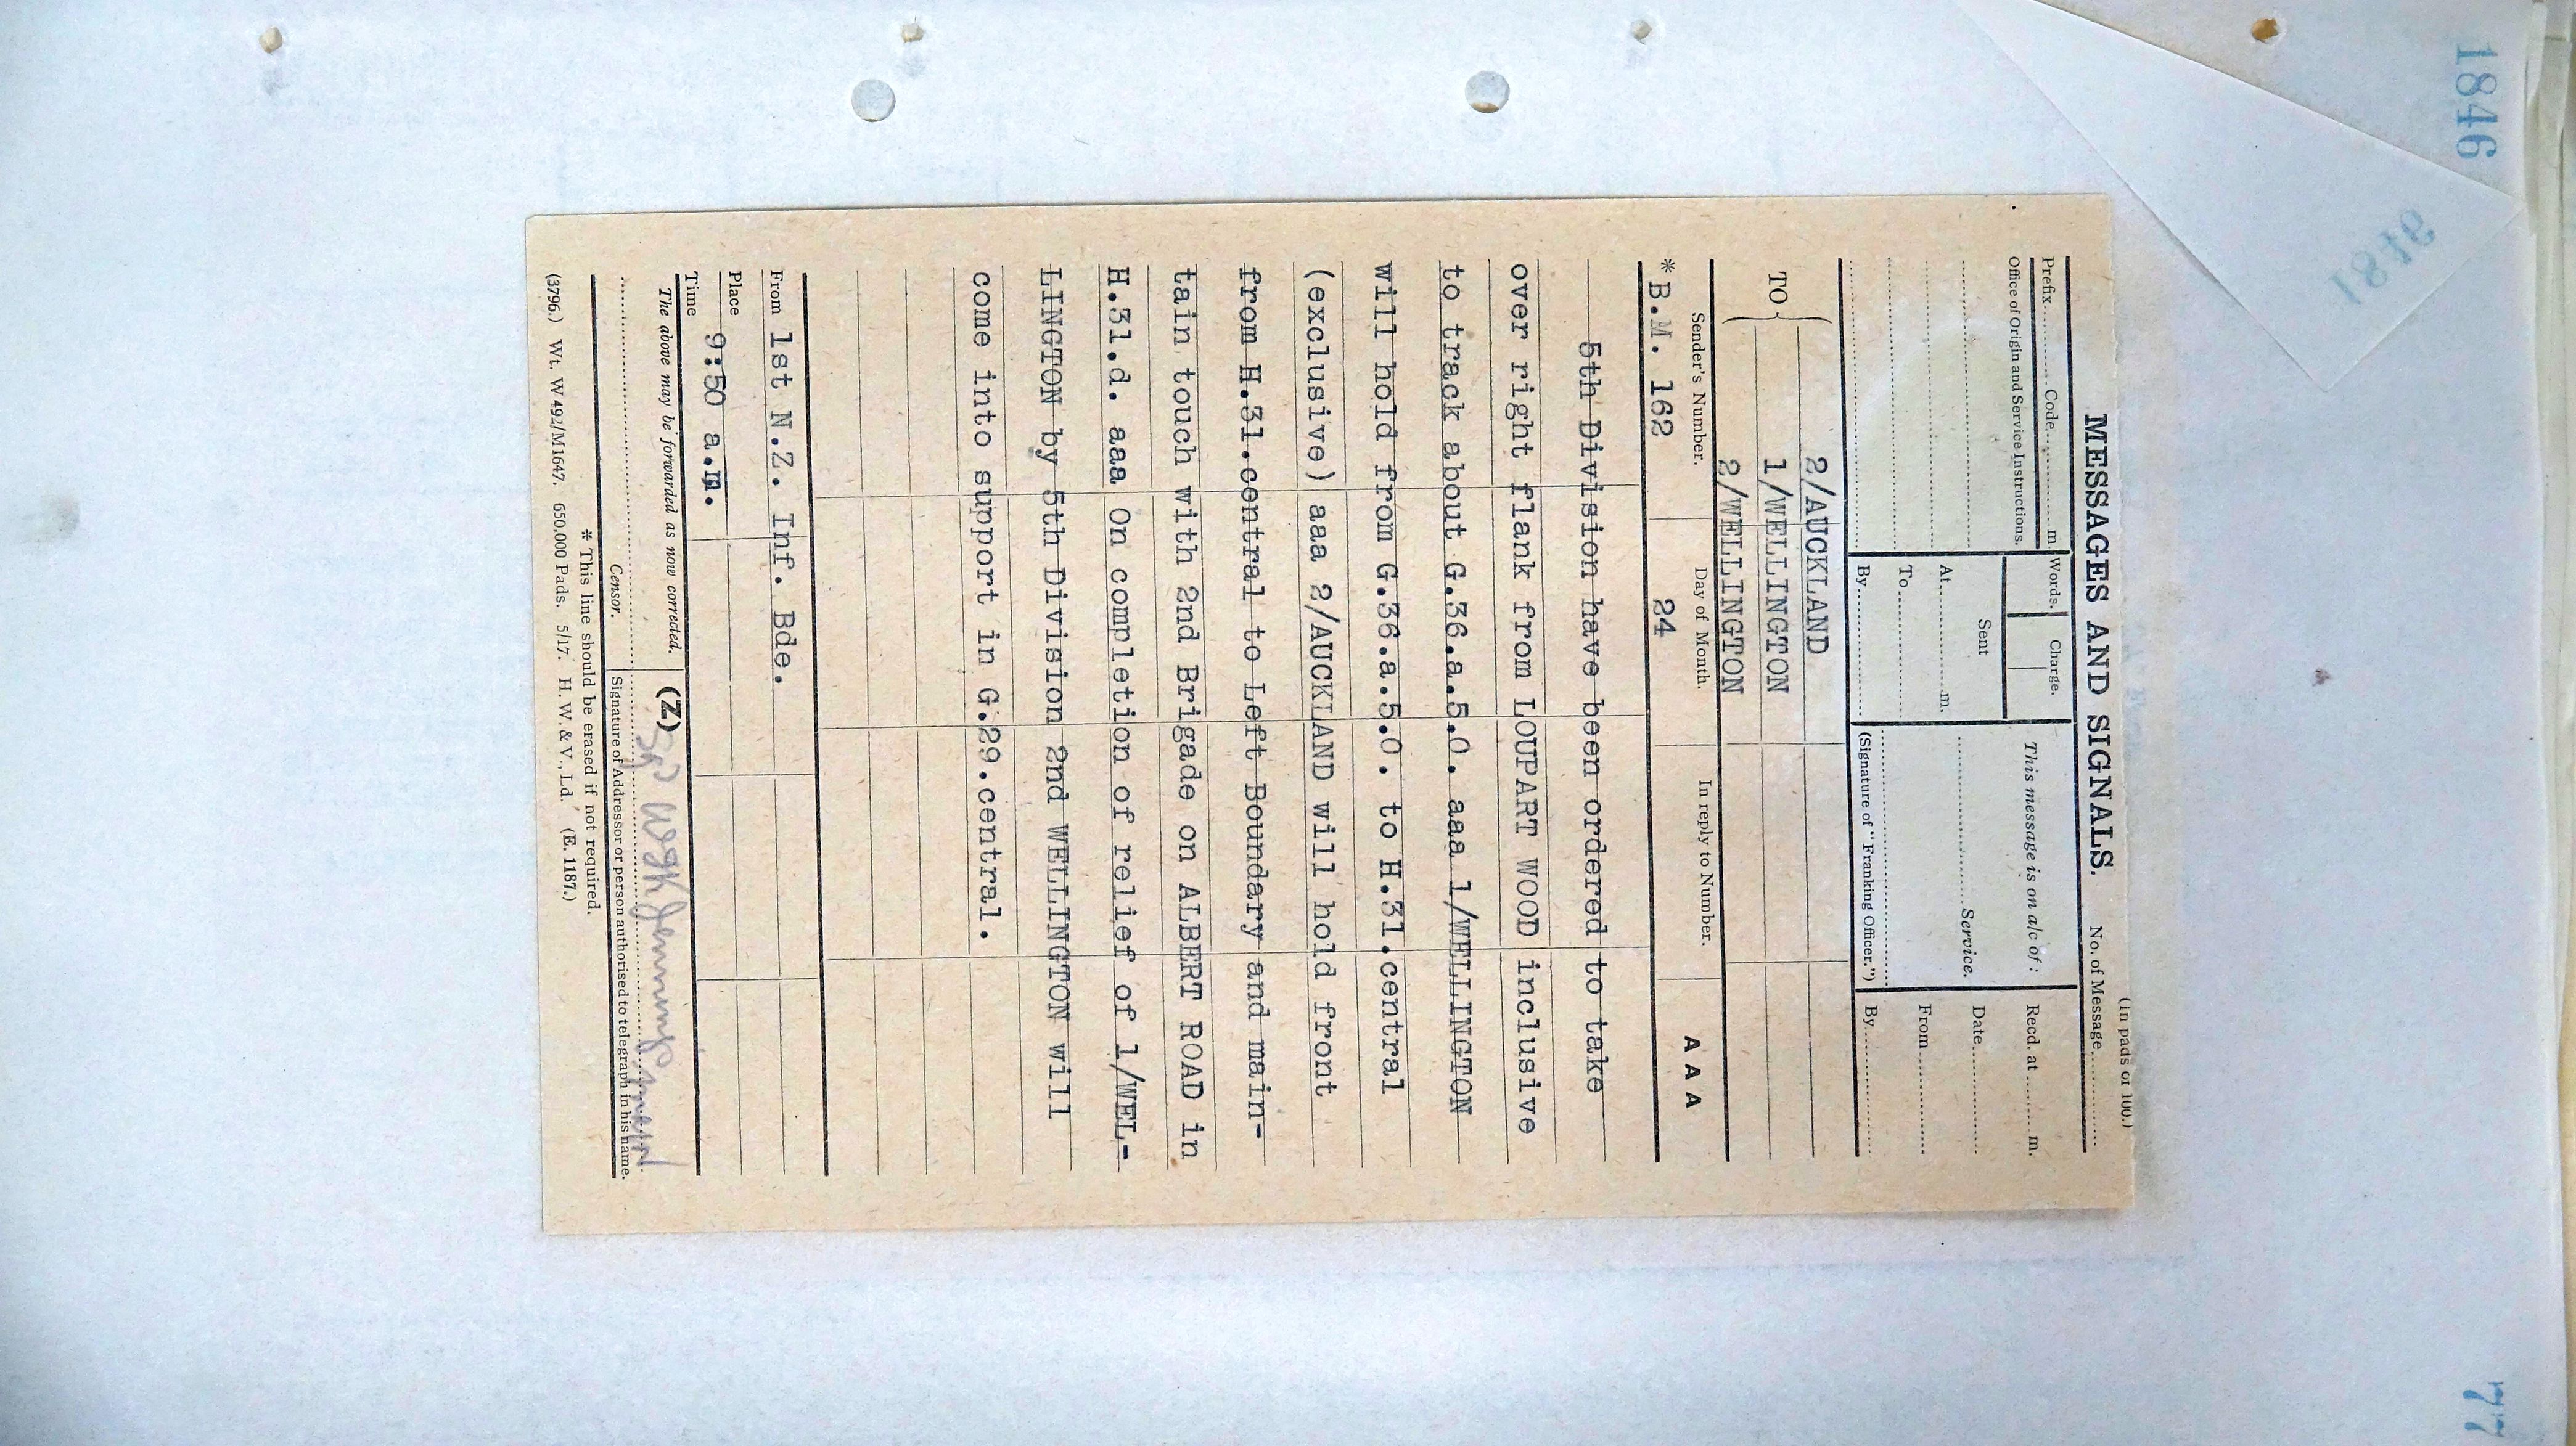 1846
MESSAGES AND SIGNALS.
(In pads of 100.)
No. of Message
Prefix Code m
Words. Charge.
This message is on a/c of:
Recd. at m.
Office of Origin and Service Instructions.
Sent
Service.
Date
At m.
From
To
By
(Signature of "Franking Officer.")
By
TO
2/AUCKLAND
1/WELLINGTON
2/WELLINGTON
Sender's Number. Day of Month. In reply to Number. AAA
* B.M. 162 24
5th Division have been ordered to take
over right flank from LOUPART WOOD inclusive
to track about G.36.a.5.0. aaa 1/WELLINGTON
will hold from G.36.a.5.0. to H.31.central
(exclusive) aaa 2/AUCKLAND will hold front
from H.31.central to Left Boundary and main-
tain touch with 2nd Brigade on ALBERT ROAD in
H.31.d. aaa On completion of relief of 1/WEL-
LINGTON by 5th Division 2nd WELLINGTON will
come into support in G.29.central.
From 1st N.Z. Inf. Bde.
Place
Time 9:50 a.m.
The above may be forwarded as now corrected. (Z)
Censor. Signature of Addressor or person authorised to telegraph in his name.
* This line should be erased if not required.
(3796.) Wt. W492/M1647. 650,000 Pads. 5/17. H. W. & V., Ld. (E. 1187.)
77